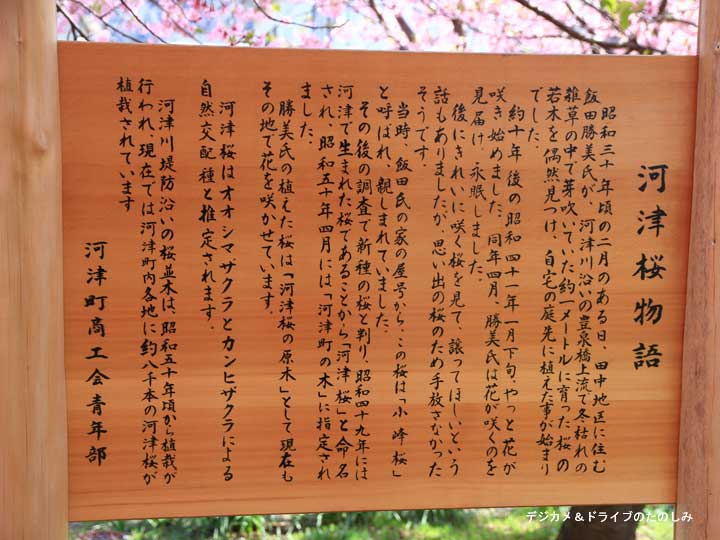 河津桜物語
昭和三十年頃の二月のある日、田中地区に住む
飯田勝美氏が、河津川沿いの豊泉橋上流で冬枯れの
雑草の中で芽吹いていた約一メートルに育った桜の
若木を偶然見つけ、自宅の庭先に植えた事が始まり
でした。
約十年後の昭和四十一年一月下旬、やっと花が
咲き始めました。同年四月、勝美氏は花が咲くのを
見届け、永眠しました。
後にきれいに咲く桜を見て、譲ってほしいという
話もありましたが、思い出の桜のため手放さなかった
そうです。
当時、飯田氏の家の屋号から、この桜は「小峰桜」
と呼ばれ、親しまれていました。
その後の調査で新種の桜と判り、昭和四十九年には
河津で生まれた桜であることから「河津桜」と命名
され、昭和五十年四月には「河津町の木」に指定され
ました。
勝美氏の植えた桜は「河津桜の原木」として現在も
その地で花を咲かせています。
河津桜はオオシマザクラとカンヒザクラによる
自然交配種と推定されます。
河津川堤防沿いの桜並木は、昭和五十年頃から植栽が
行われ、現在では河津町内各地に約八千本の河津桜が
植栽されています
河津町商工会青年部
デジカメ＆ドライブのたのしみ